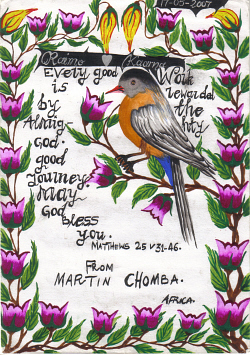 17-05-2007
Raimo Rauma
Every good Work
is rewarded
by the
Almig- hty
God,
good
Journey.
May
God
Bless
you.
MATTHEWS 25 V 31-46.
FROM
MARTIN CHOMBA.
AFRICA.